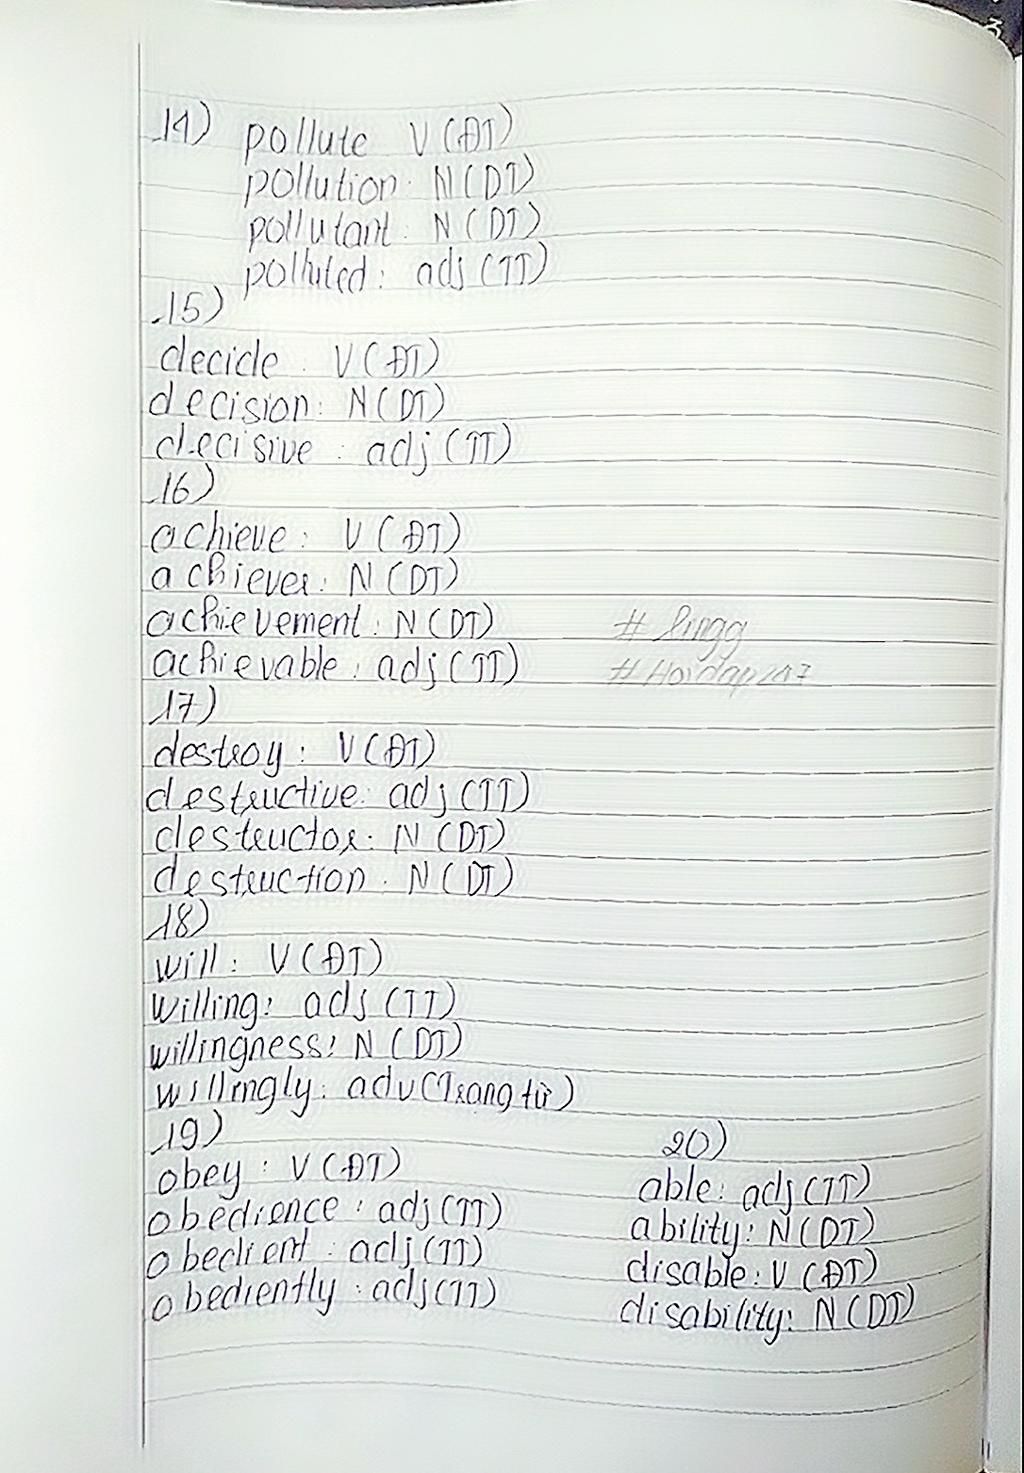 14) pollute V (ĐT)
pollution: N (DT)
pollutant: N (DT)
polluted: adj (TT)
15)
decide: V (ĐT)
decision: N (DT)
decisive: adj (TT)
16)
achieve: V (ĐT)
achiever: N (DT)
achievement: N (DT)
achievable: adj (TT)
# lingg
# Hoidap247
17)
destroy: V (ĐT)
destructive: adj (TT)
destructor: N (DT)
destruction: N (DT)
18)
will: V (ĐT)
willing: adj (TT)
willingness: N (DT)
willingly: adv (Trạng từ)
19)
obey: V (ĐT)
obedience: adj (TT)
obedient: adj (TT)
obediently: adj (TT)
20)
able: adj (TT)
ability: N (DT)
disable: V (ĐT)
disability: N (DT)